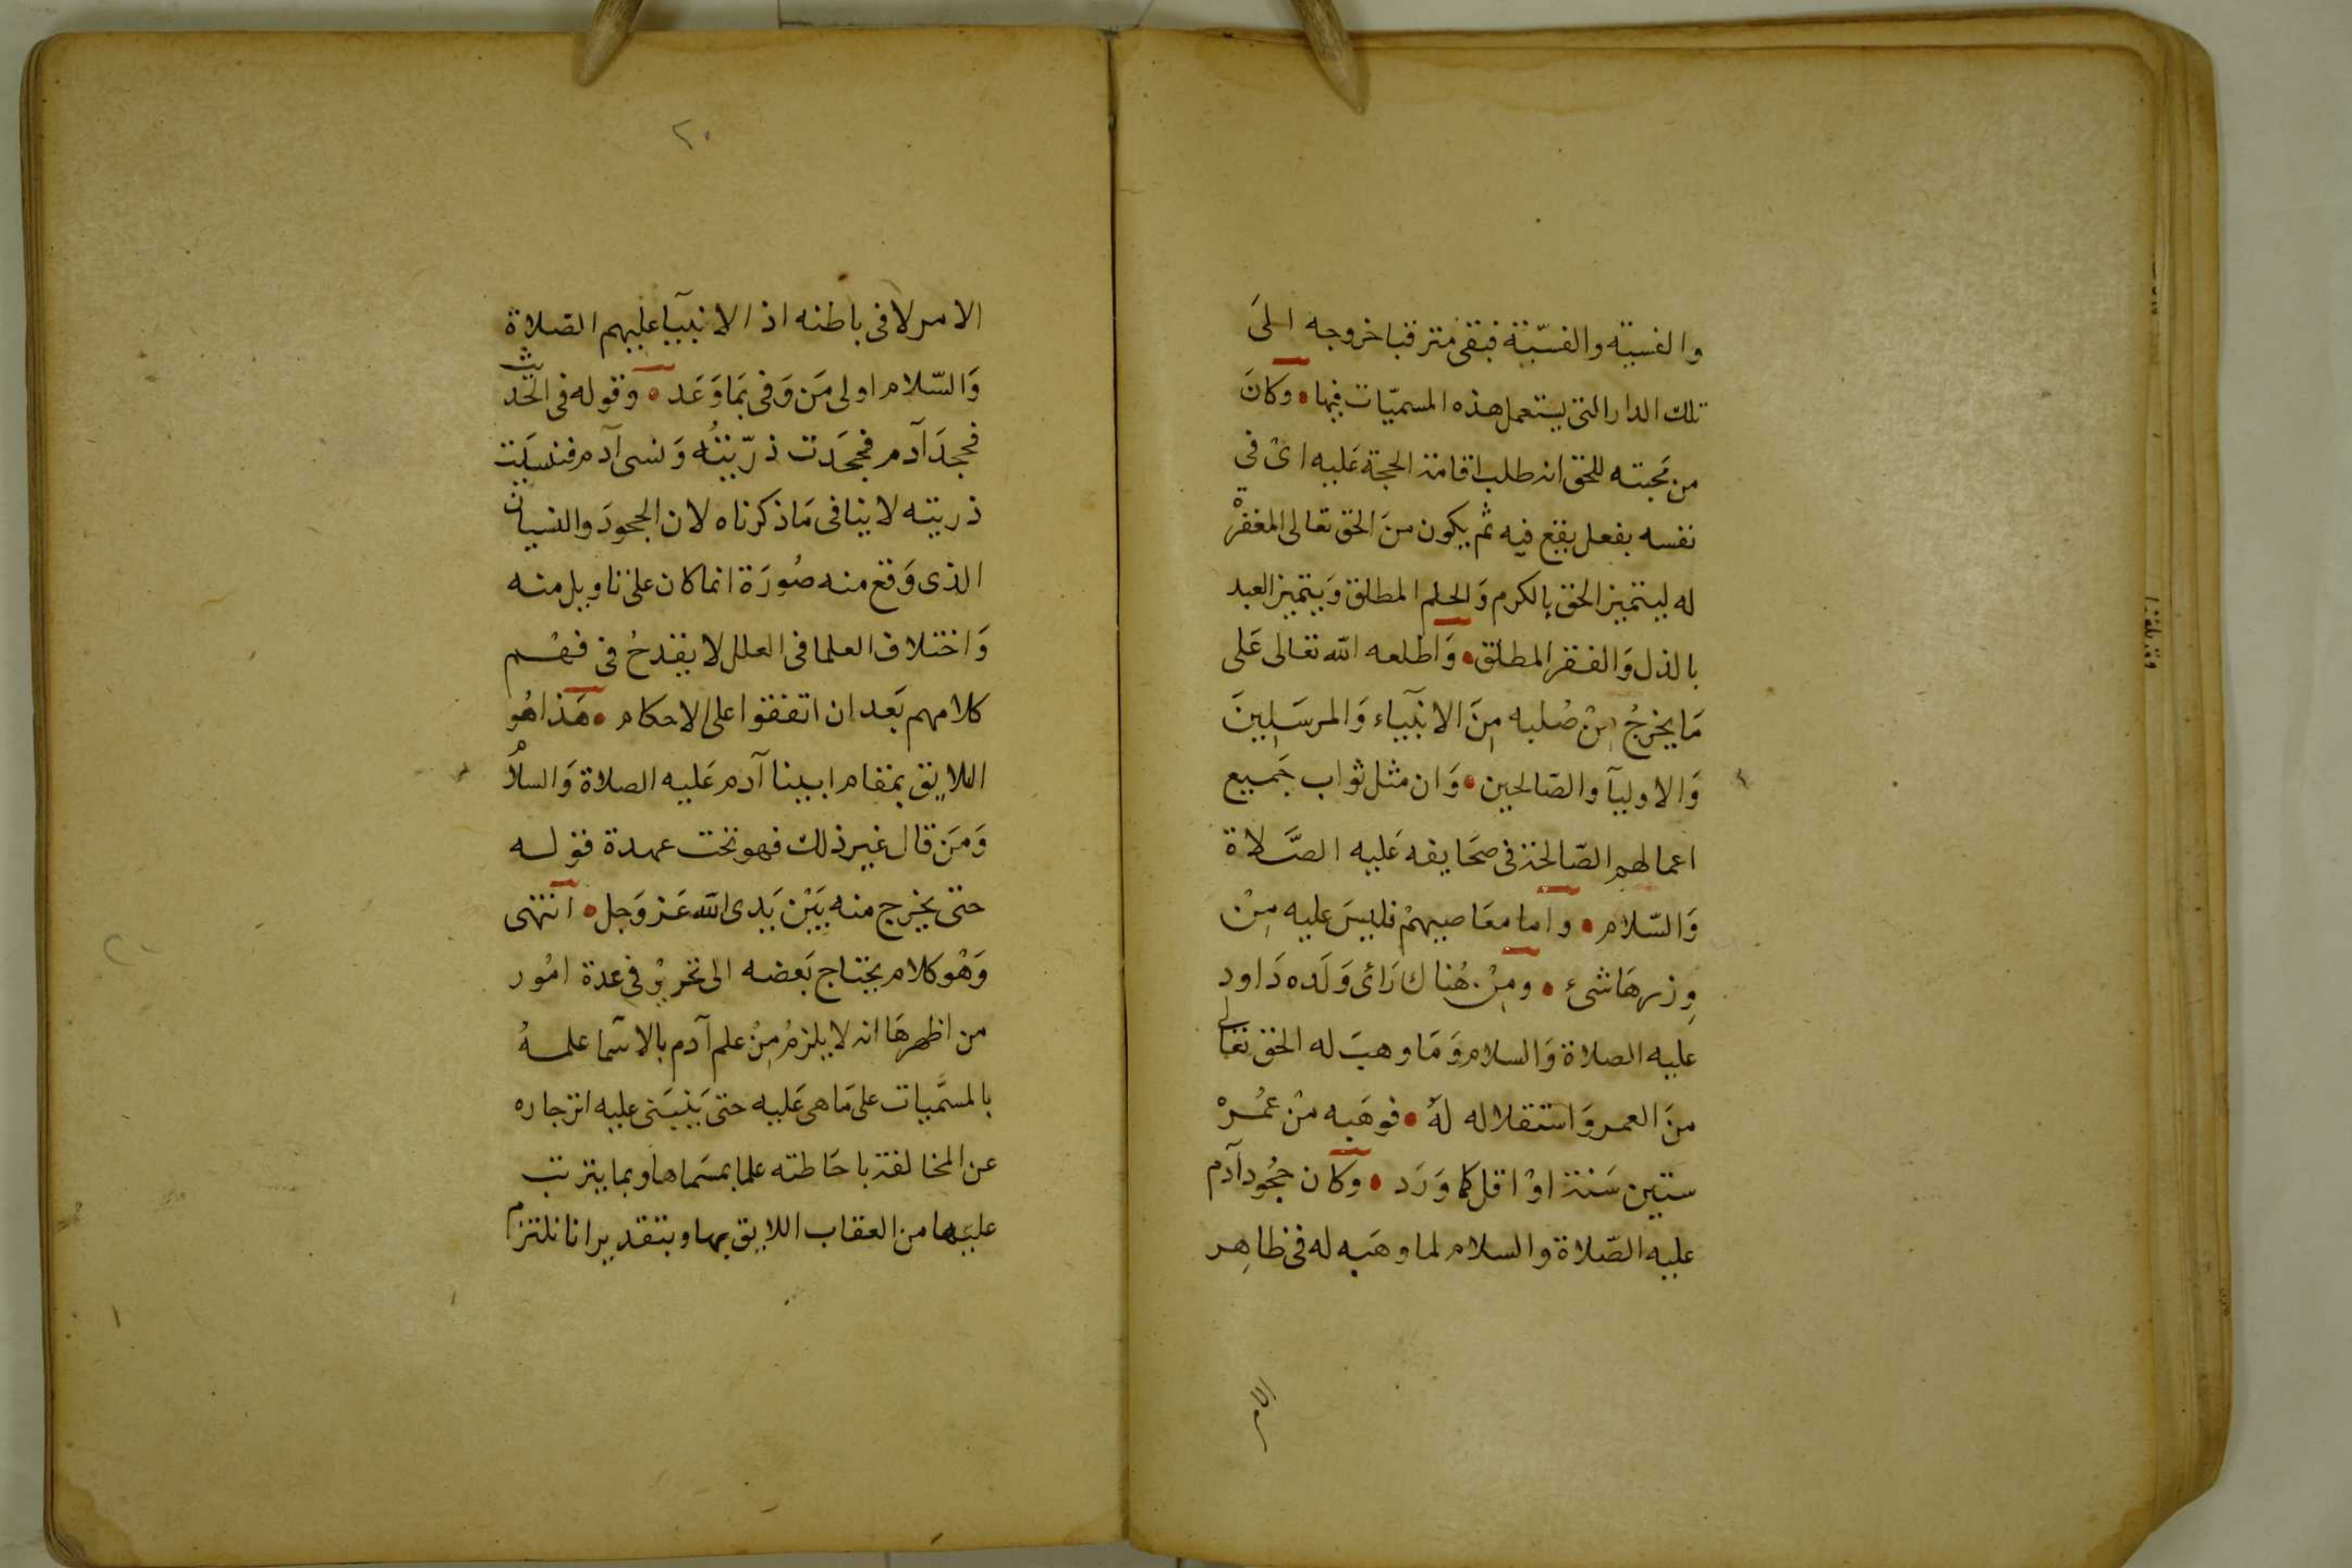 والفسيه والفسّية فبقى مترقبا خروجه الىَ
تلك الدار التى يستعمل هذه المسميّات فيها • وكانَ
من محبته للحق انه طلب اقامة الحجة عَليه اىْ فى
نفسه بفعل يقع فيه ثم يكون منَ الحق تعالى المغفرْة
له ليتميز الحق بالكرم وَالحلم المطلق وَيتميز العبد
بالذل وَالفقر المطلق • وَاطلعه الله تعالى عَلى
مَا يخرجُ مِنْ صُلبه مِنَ الانبيآء وَالمرسَلِينَ
وَالاوليآ والصّالحين • وَان مثل ثواب جَميع
اعمالهم الصّالحة فى صحَايفه عَليه الصَّلاة
وَالسّلام • واما معَاصيهمْ فليسَ عليه مِنْ
وِزرهَا شىء • ومِنْ هُناك رَأى وَلَده دَاود
عليه الصلاة وَالسلام وَمَا وهبَ له الحق تعالى
منَ العمر وَاستقلاله لهُ • فوهَبه منْ عمُرهْ
ستين سَنة اوْ اقل كما وَرَد • وكان جحُود آدم
عليه الصّلاة والسلام لما وهَبه له فى ظاهِر
الام
٢٠
الامر لا فى باطنه اذ الانبيآ عليهم الصّلاة
وَالسّلام اولى مَن وَفى بمَا وَعَد • وقوله فى الحديث
فجحدَ آدم فجحَدت ذرّيتُه وَنسى آدم فنسيَت
ذريته لا ينافى مَا ذكرناه لان الجحودَ والنسيان
الذى وَقع منه صُورَة انما كان على تاويل منه
وَاختلاف العلما فى العلل لا يقدحُ فى فهْم
كلامهم بَعد ان اتفقوا على الاحكام • هَذا هُو
اللايق بمقام ابينا آدم عَليه الصلاة وَالسلام
وَمَن قال غير ذلك فهو تحت عهدة قوله
حتى يخرج منه بَيْن يَدى الله عَز وَجل • انتهى
وَهْو كلام يحتاج بَعضه الى تحرير فى عدة امُور
من اظهرهَا انه لا يلزمُ مِنْ علم آدم بالاسما علمهُ
بالمسَّميات على مَا هى عَليه حتى يَنبَنى عليه انزجاره
عن المخالفة باحَاطته علما بمسَماها وبما يترتب
عليَها من العقاب اللايق بها وبتقدير انا نلتزم